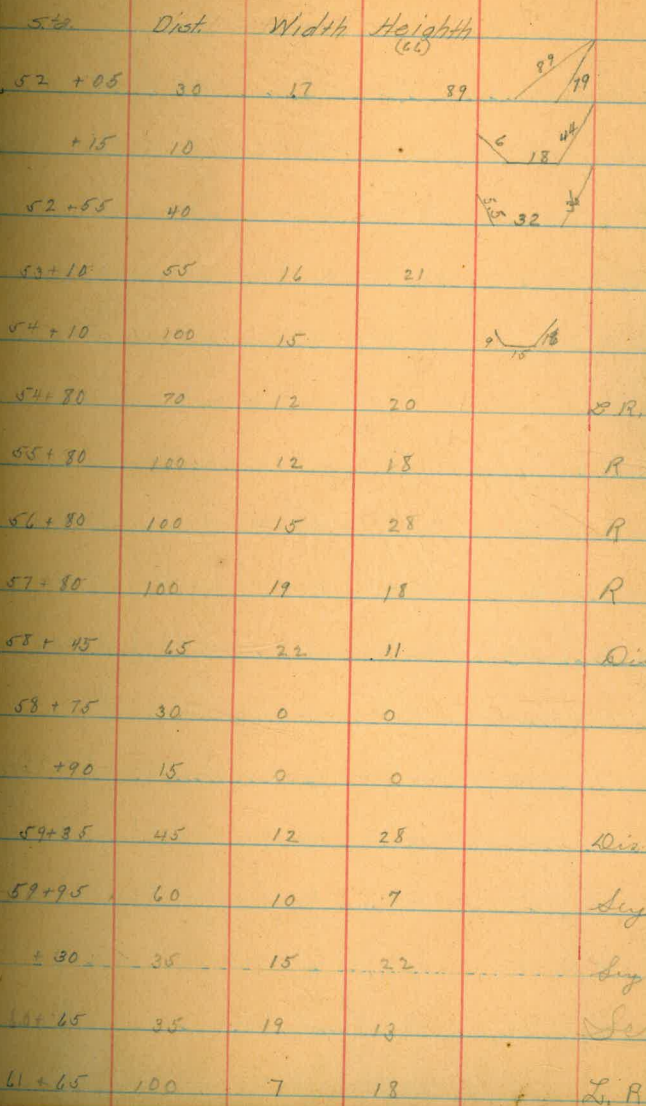 Sta. Dist. Width Heighth
(66)
52 +05 30 17 89 89 79
+15 10 6 18 44
52+55 40 5.5 32
53+10 55 16 21
54+10 100 15 9 15
54+80 70 12 20 L R.
55+80 100 12 18 R
56+80 100 15 28 R
57+80 100 19 18 R
58+45 65 22 11
58+75 30 0 0
+90 15 0 0
59+35 45 12 28
59+95 60 10 7
+30 35 15 22
60+65 35 19 13
61+65 100 7 18 L. R